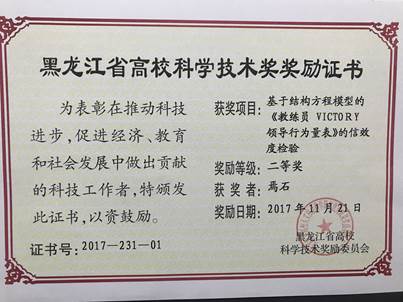 黑龙江省高校科学技术奖奖励证书
为表彰在推动科技
进步,促进经济、教育
和社会发展中做出贡献
的科技工作者,特颁发
此证书,以资鼓励。
证书号:2017—231—01
获奖项目:基于结构方程模型的
《教练员 VICTORY
领导行为量表》的信效
度检验
奖励等级:二等奖
获奖者:焉石
奖励日期:2017年11月21日
黑龙江省高校
科学技术奖励委员会